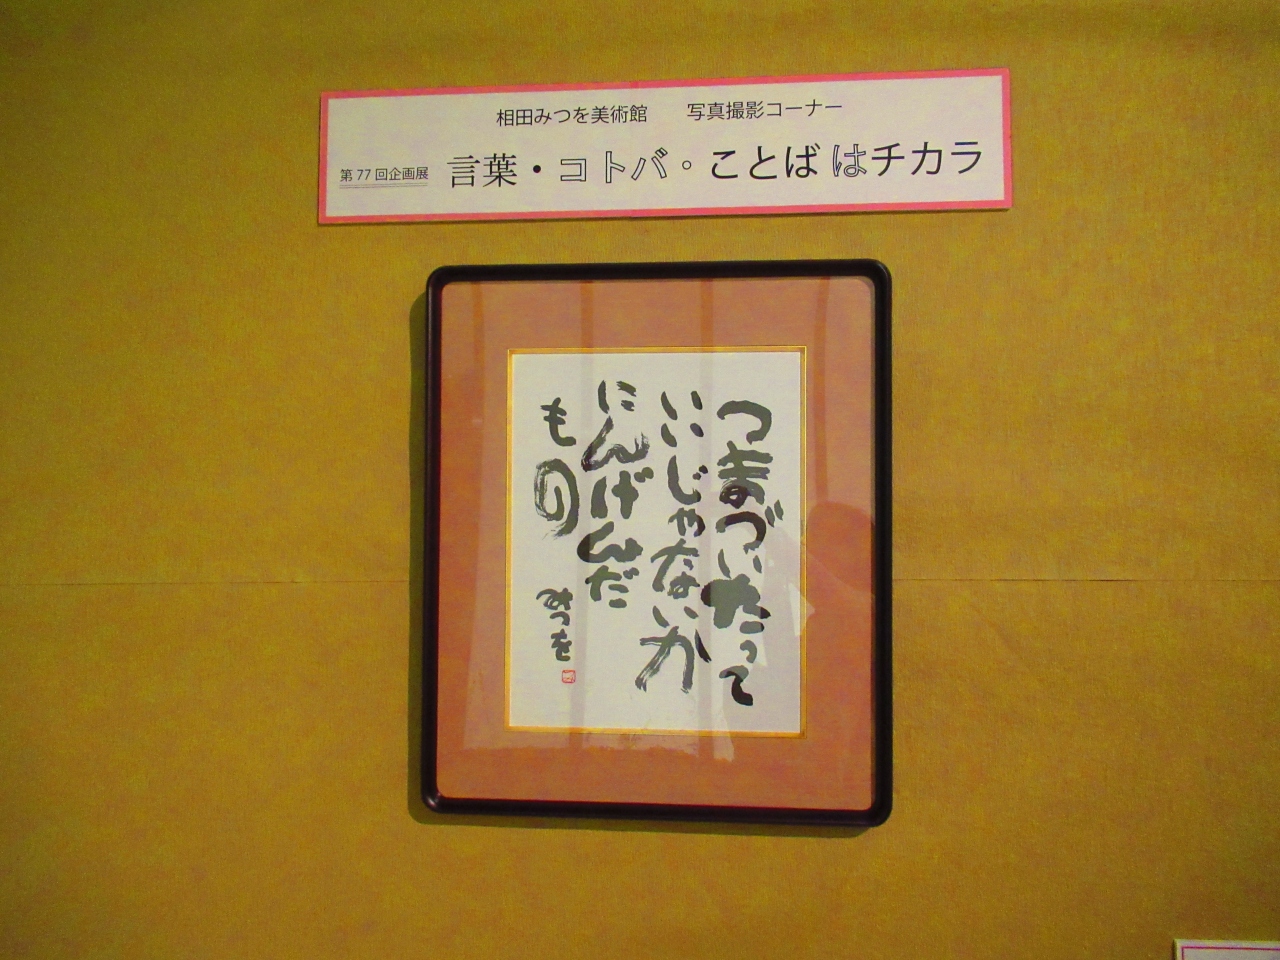 相田みつを美術館 写真撮影コーナー
第77回企画展 言葉・コトバ・ことばはチカラ
つまづいたって
いいじゃないか
にんげんだ
もの
みつを